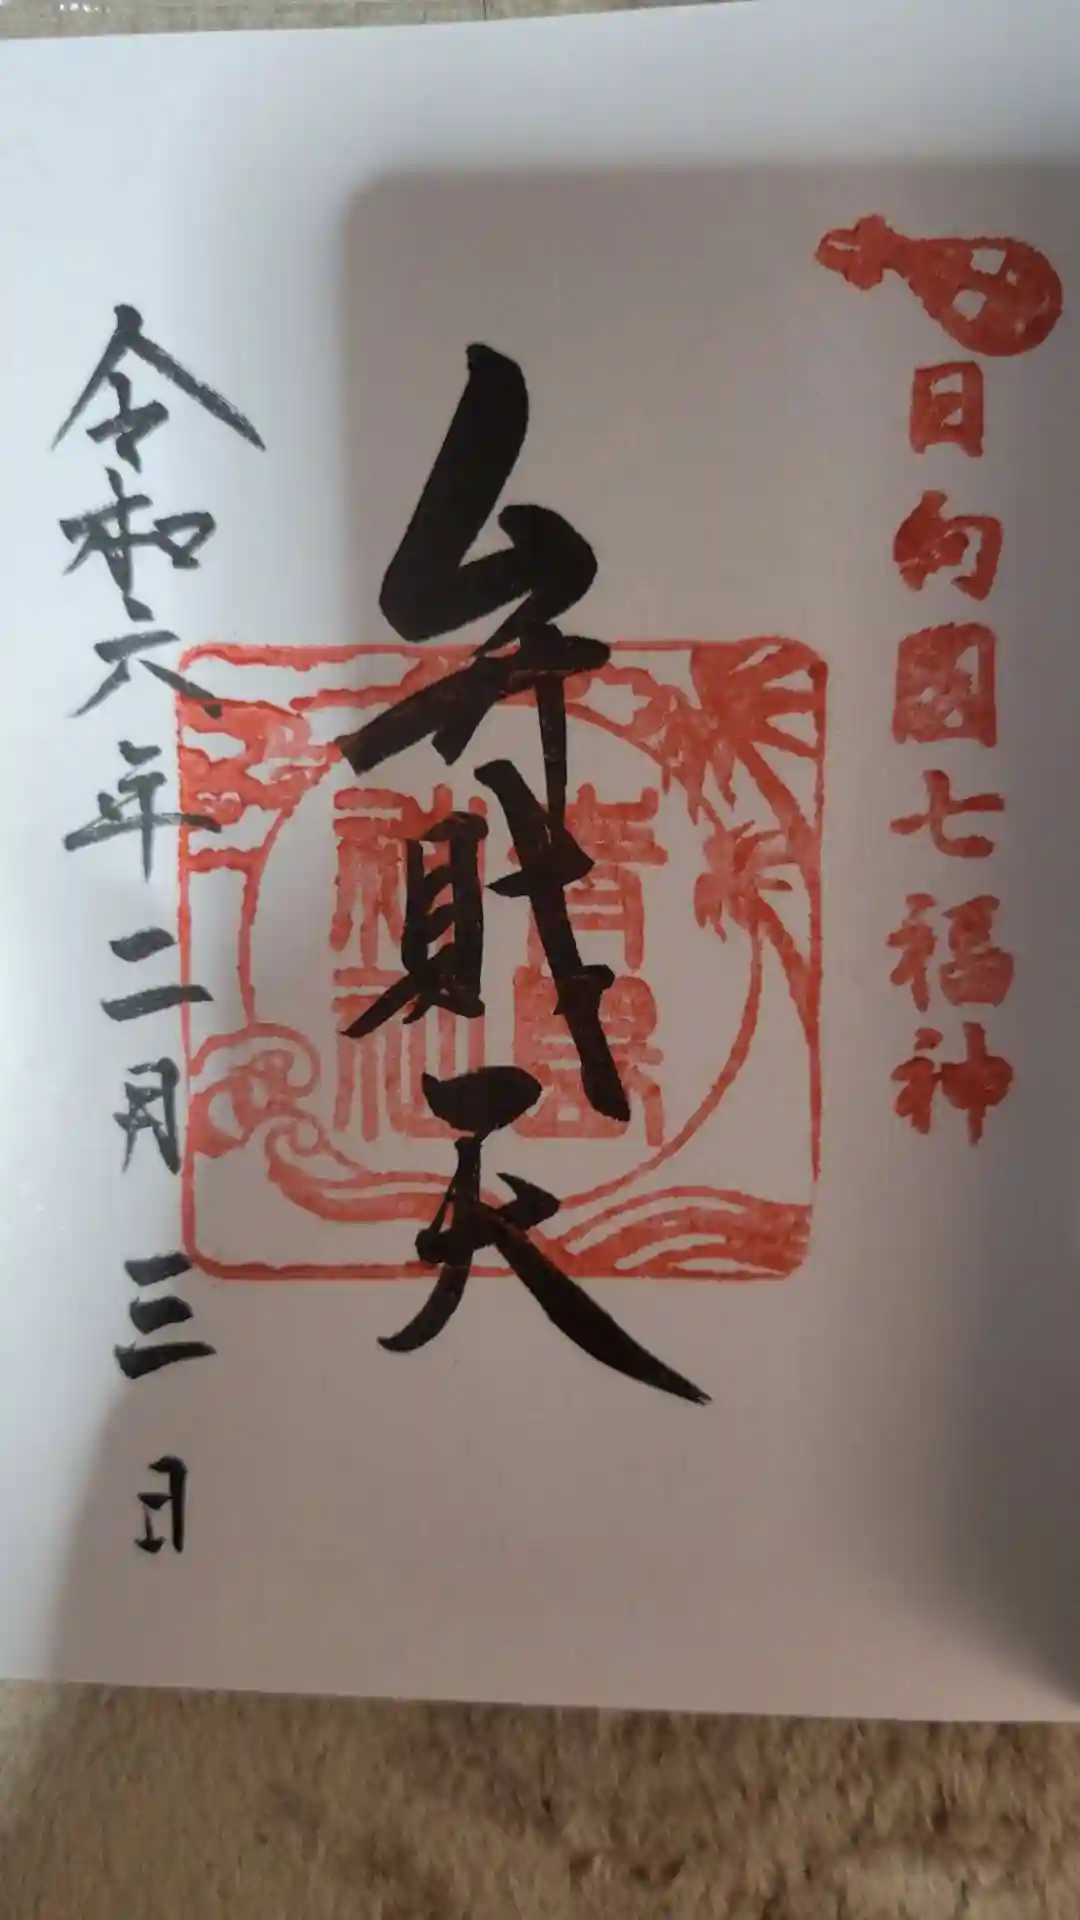 日向國七福神
弁財天
青島
神社
令和六年二月三日